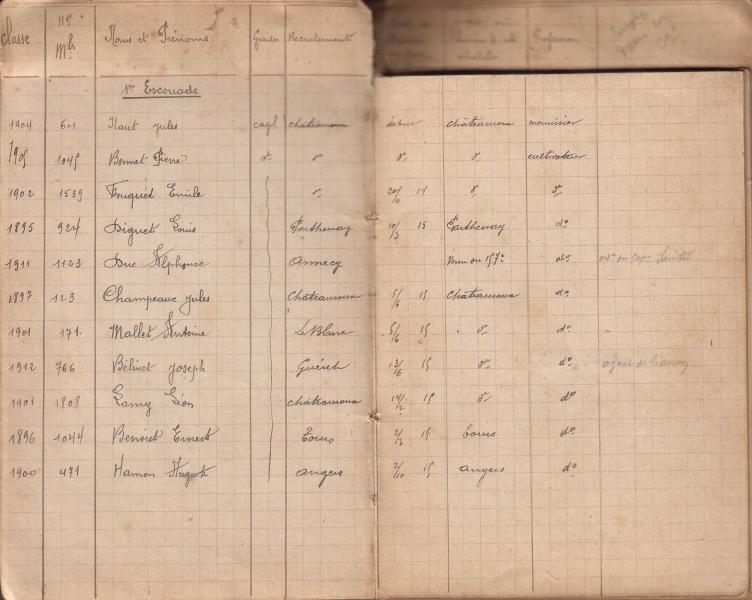 classe Nos Mles Noms et Prénoms Grades Recrutement Profession
1re Escouade
1904 601 Haut Jules capl chateauroux début châteauroux menuisier
1905 1045 Bonnet Pierre do do do do cultivateur
1902 1539 Fouquet Emile do 20/11 14 do do
1895 924 Diguet Louis Parthenay 10/3 15 Parthenay do
1911 1123 Duc Alphonse Annecy Venu du 157e do
1897 123 Champeaux Jules Châteauroux 5/6 15 Châteauroux do
1901 171. Mallet Antoine Le Blanc 5/6 15 do do
1912 766 Bélinet Joseph Guéret 13/6 15 do do agent de liaison
1901 1808 Lamy Léon châteauroux 14/2 15 do do
1896 1044 Benoist Ernest Tours 2/3 15 Tours do
1900 471 Hamon Auguste Angers 2/10 15 Angers do